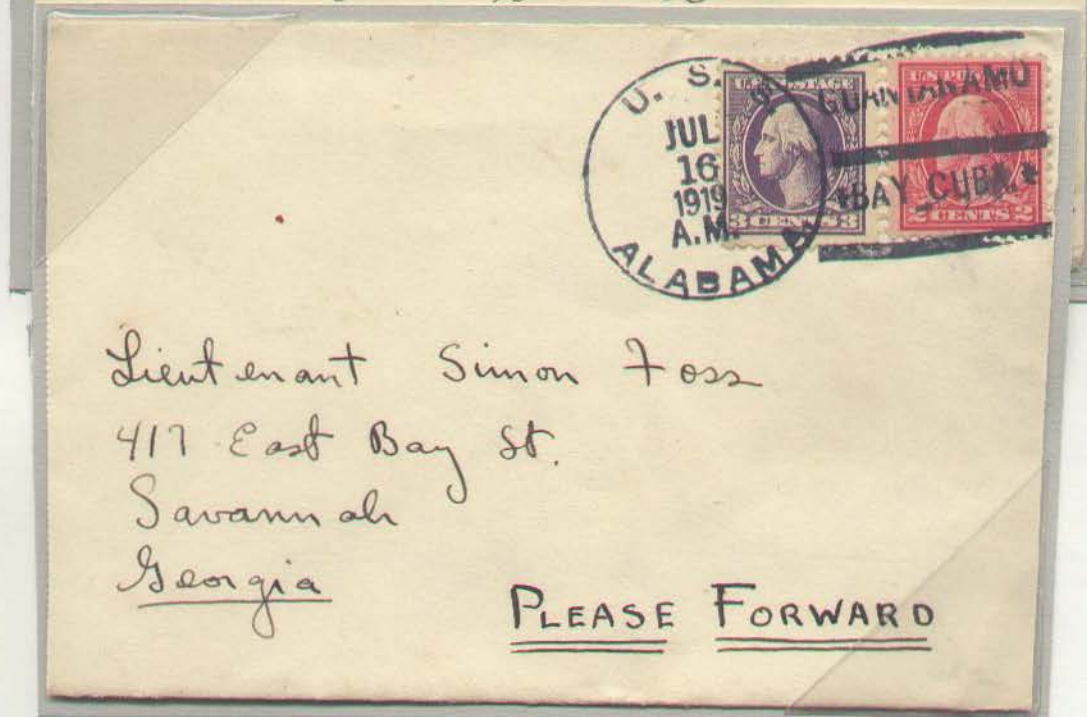 U. S. S.
JUL
16
1919
A.M.
ALABAMA.
GUANTANAMO
*BAY_CUBA.*
U.S. POSTAGE
3 CENTS 3
U.S. POSTAGE
2 CENTS 2
Lieutenant Simon Foss
417 East Bay St.
Savannah
Georgia
PLEASE FORWARD